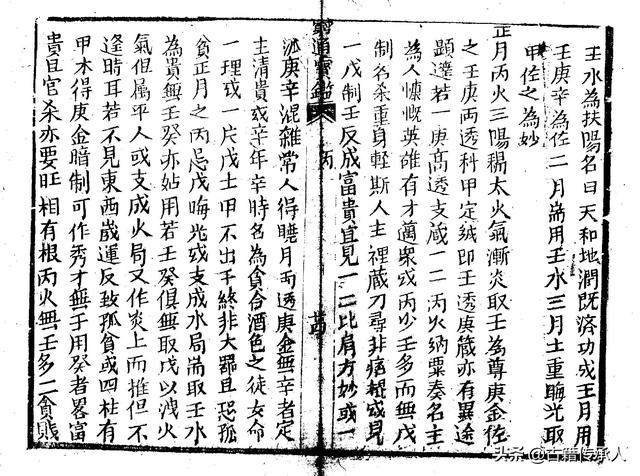 壬水為扶陽名曰天和地潤既濟功成正月用
壬庚辛為佐二月耑用壬水三月土重晦光取
甲佐之為妙
正月丙火三陽稱太火氣漸炎取壬為尊庚金佐
之壬庚兩透科甲定然即壬透庚藏亦有異途
顯達若一庚高透支藏一二丙火納粟奏名主
為人慷慨英雄有才邁衆或丙少壬多而無戊
制名杀重身輕斯人主裡藏刀尋非痞棍或見
一戊制壬反成富貴宜見一二比肩方妙或一
窮通寶鑑
丙
派庚辛混雜常人得曉月而透庚金無辛者定
主清貴或辛年辛時名為貪合酒色之徒女命
一理或一片戊土甲不出干終非大器且恐孤
貧正月之丙忌戊晦光或支成水局耑取壬水
為貴無壬癸亦姑用若壬癸俱無取戊以洩火
氣但屬平人或支成火局又作炎上而推但不
逢時耳若不見東西歲運反致孤貧或四柱有
甲木得庚金暗制可作秀才無壬用癸者畧富
貴且官杀亦要旺相有根丙火無壬多二貪賤
头条 @古籍传承人